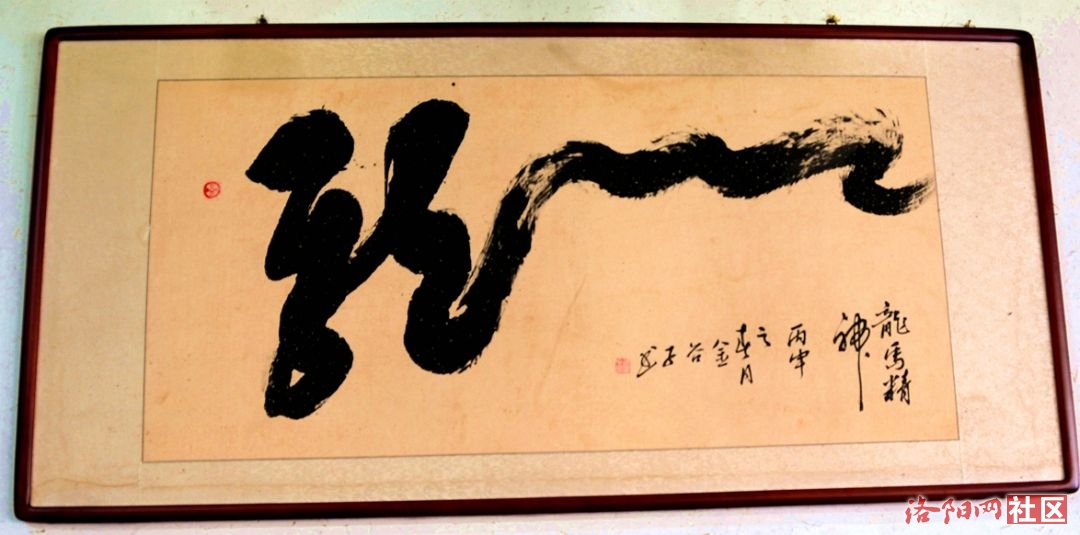 龍
龍馬精
神
丙申
之
春月
金
谷
子
書
洛阳网社区